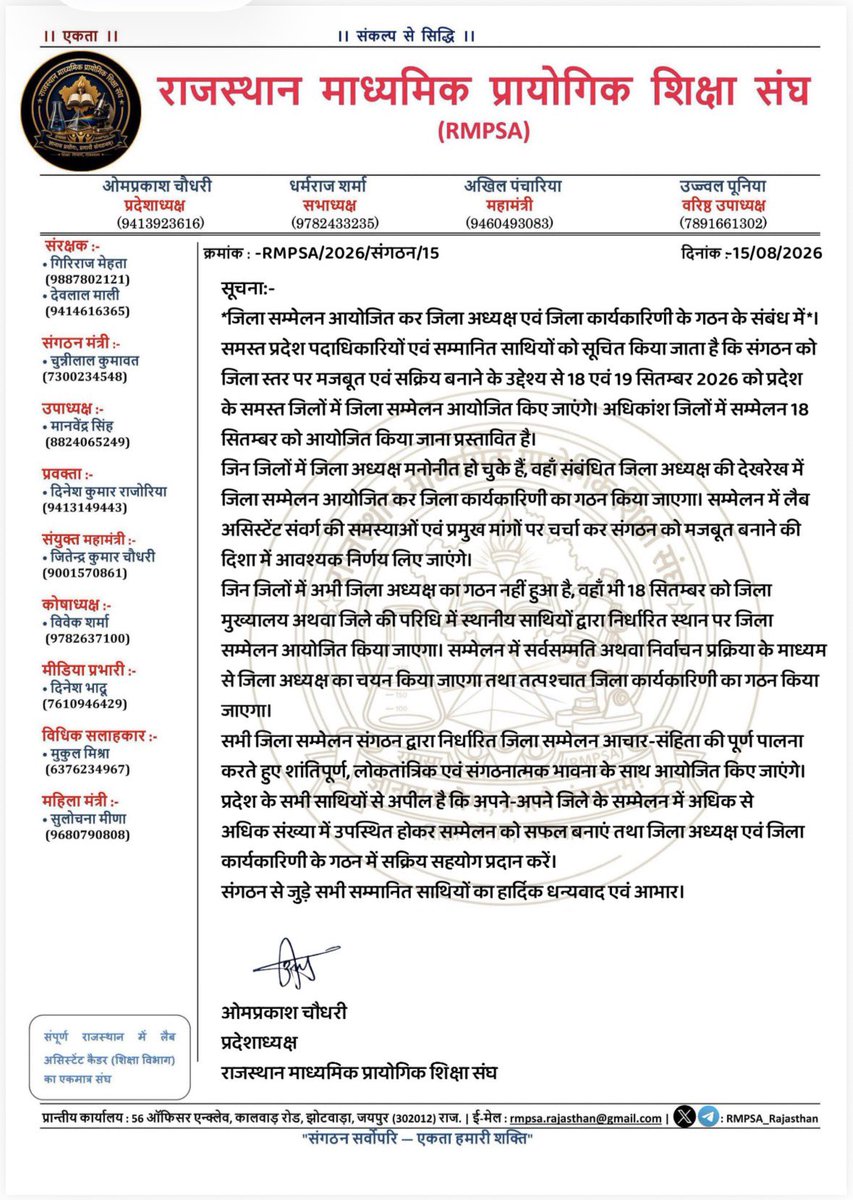 ।। एकता ।।
।। संकल्प से सिद्धि ।।
राजस्थान माध्यमिक प्रायोगिक शिक्षा संघ
(RMPSA)
ओमप्रकाश चौधरी
प्रदेशाध्यक्ष
(9413923616)
धर्मराज शर्मा
सभाध्यक्ष
(9782433235)
अखिल पंचारिया
महामंत्री
(9460493083)
उज्ज्वल पूनिया
वरिष्ठ उपाध्यक्ष
(7891661302)
संरक्षक :-
• गिरिराज मेहता
(9887802121)
• देवलाल माली
(9414616365)
संगठन मंत्री :-
• चुन्नीलाल कुमावत
(7300234548)
उपाध्यक्ष :-
• मानवेंद्र सिंह
(8824065249)
प्रवक्ता :-
• दिनेश कुमार राजोरिया
(9413149443)
संयुक्त महामंत्री :-
• जितेन्द्र कुमार चौधरी
(9001570861)
कोषाध्यक्ष :-
• विवेक शर्मा
(9782637100)
मीडिया प्रभारी :-
• दिनेश भादू
(7610946429)
विधिक सलाहकार :-
• मुकुल मिश्रा
(6376234967)
महिला मंत्री :-
• सुलोचना मीणा
(9680790808)
संपूर्ण राजस्थान में लैब
असिस्टेंट कैडर (शिक्षा विभाग)
का एकमात्र संघ
क्रमांक : -RMPSA/2026/संगठन/15
दिनांक :-15/08/2026
सूचना:-
*जिला सम्मेलन आयोजित कर जिला अध्यक्ष एवं जिला कार्यकारिणी के गठन के संबंध में*।
समस्त प्रदेश पदाधिकारियों एवं सम्मानित साथियों को सूचित किया जाता है कि संगठन को
जिला स्तर पर मजबूत एवं सक्रिय बनाने के उद्देश्य से 18 एवं 19 सितम्बर 2026 को प्रदेश
के समस्त जिलों में जिला सम्मेलन आयोजित किए जाएंगे। अधिकांश जिलों में सम्मेलन 18
सितम्बर को आयोजित किया जाना प्रस्तावित है।
जिन जिलों में जिला अध्यक्ष मनोनीत हो चुके हैं, वहाँ संबंधित जिला अध्यक्ष की देखरेख में
जिला सम्मेलन आयोजित कर जिला कार्यकारिणी का गठन किया जाएगा। सम्मेलन में लैब
असिस्टेंट संवर्ग की समस्याओं एवं प्रमुख मांगों पर चर्चा कर संगठन को मजबूत बनाने की
दिशा में आवश्यक निर्णय लिए जाएंगे।
जिन जिलों में अभी जिला अध्यक्ष का गठन नहीं हुआ है, वहाँ भी 18 सितम्बर को जिला
मुख्यालय अथवा जिले की परिधि में स्थानीय साथियों द्वारा निर्धारित स्थान पर जिला
सम्मेलन आयोजित किया जाएगा। सम्मेलन में सर्वसम्मति अथवा निर्वाचन प्रक्रिया के माध्यम
से जिला अध्यक्ष का चयन किया जाएगा तथा तत्पश्चात जिला कार्यकारिणी का गठन किया
जाएगा।
सभी जिला सम्मेलन संगठन द्वारा निर्धारित जिला सम्मेलन आचार-संहिता की पूर्ण पालना
करते हुए शांतिपूर्ण, लोकतांत्रिक एवं संगठनात्मक भावना के साथ आयोजित किए जाएंगे।
प्रदेश के सभी साथियों से अपील है कि अपने-अपने जिले के सम्मेलन में अधिक से
अधिक संख्या में उपस्थित होकर सम्मेलन को सफल बनाएं तथा जिला अध्यक्ष एवं जिला
कार्यकारिणी के गठन में सक्रिय सहयोग प्रदान करें।
संगठन से जुड़े सभी सम्मानित साथियों का हार्दिक धन्यवाद एवं आभार।
ओमप्रकाश चौधरी
प्रदेशाध्यक्ष
राजस्थान माध्यमिक प्रायोगिक शिक्षा संघ
प्रान्तीय कार्यालय : 56 ऑफिसर एन्क्लेव, कालवाड़ रोड, झोटवाड़ा, जयपुर (302012) राज. | ई-मेल : rmpsa.rajasthan@gmail.com | : RMPSA_Rajasthan
"संगठन सर्वोपरि — एकता हमारी शक्ति"